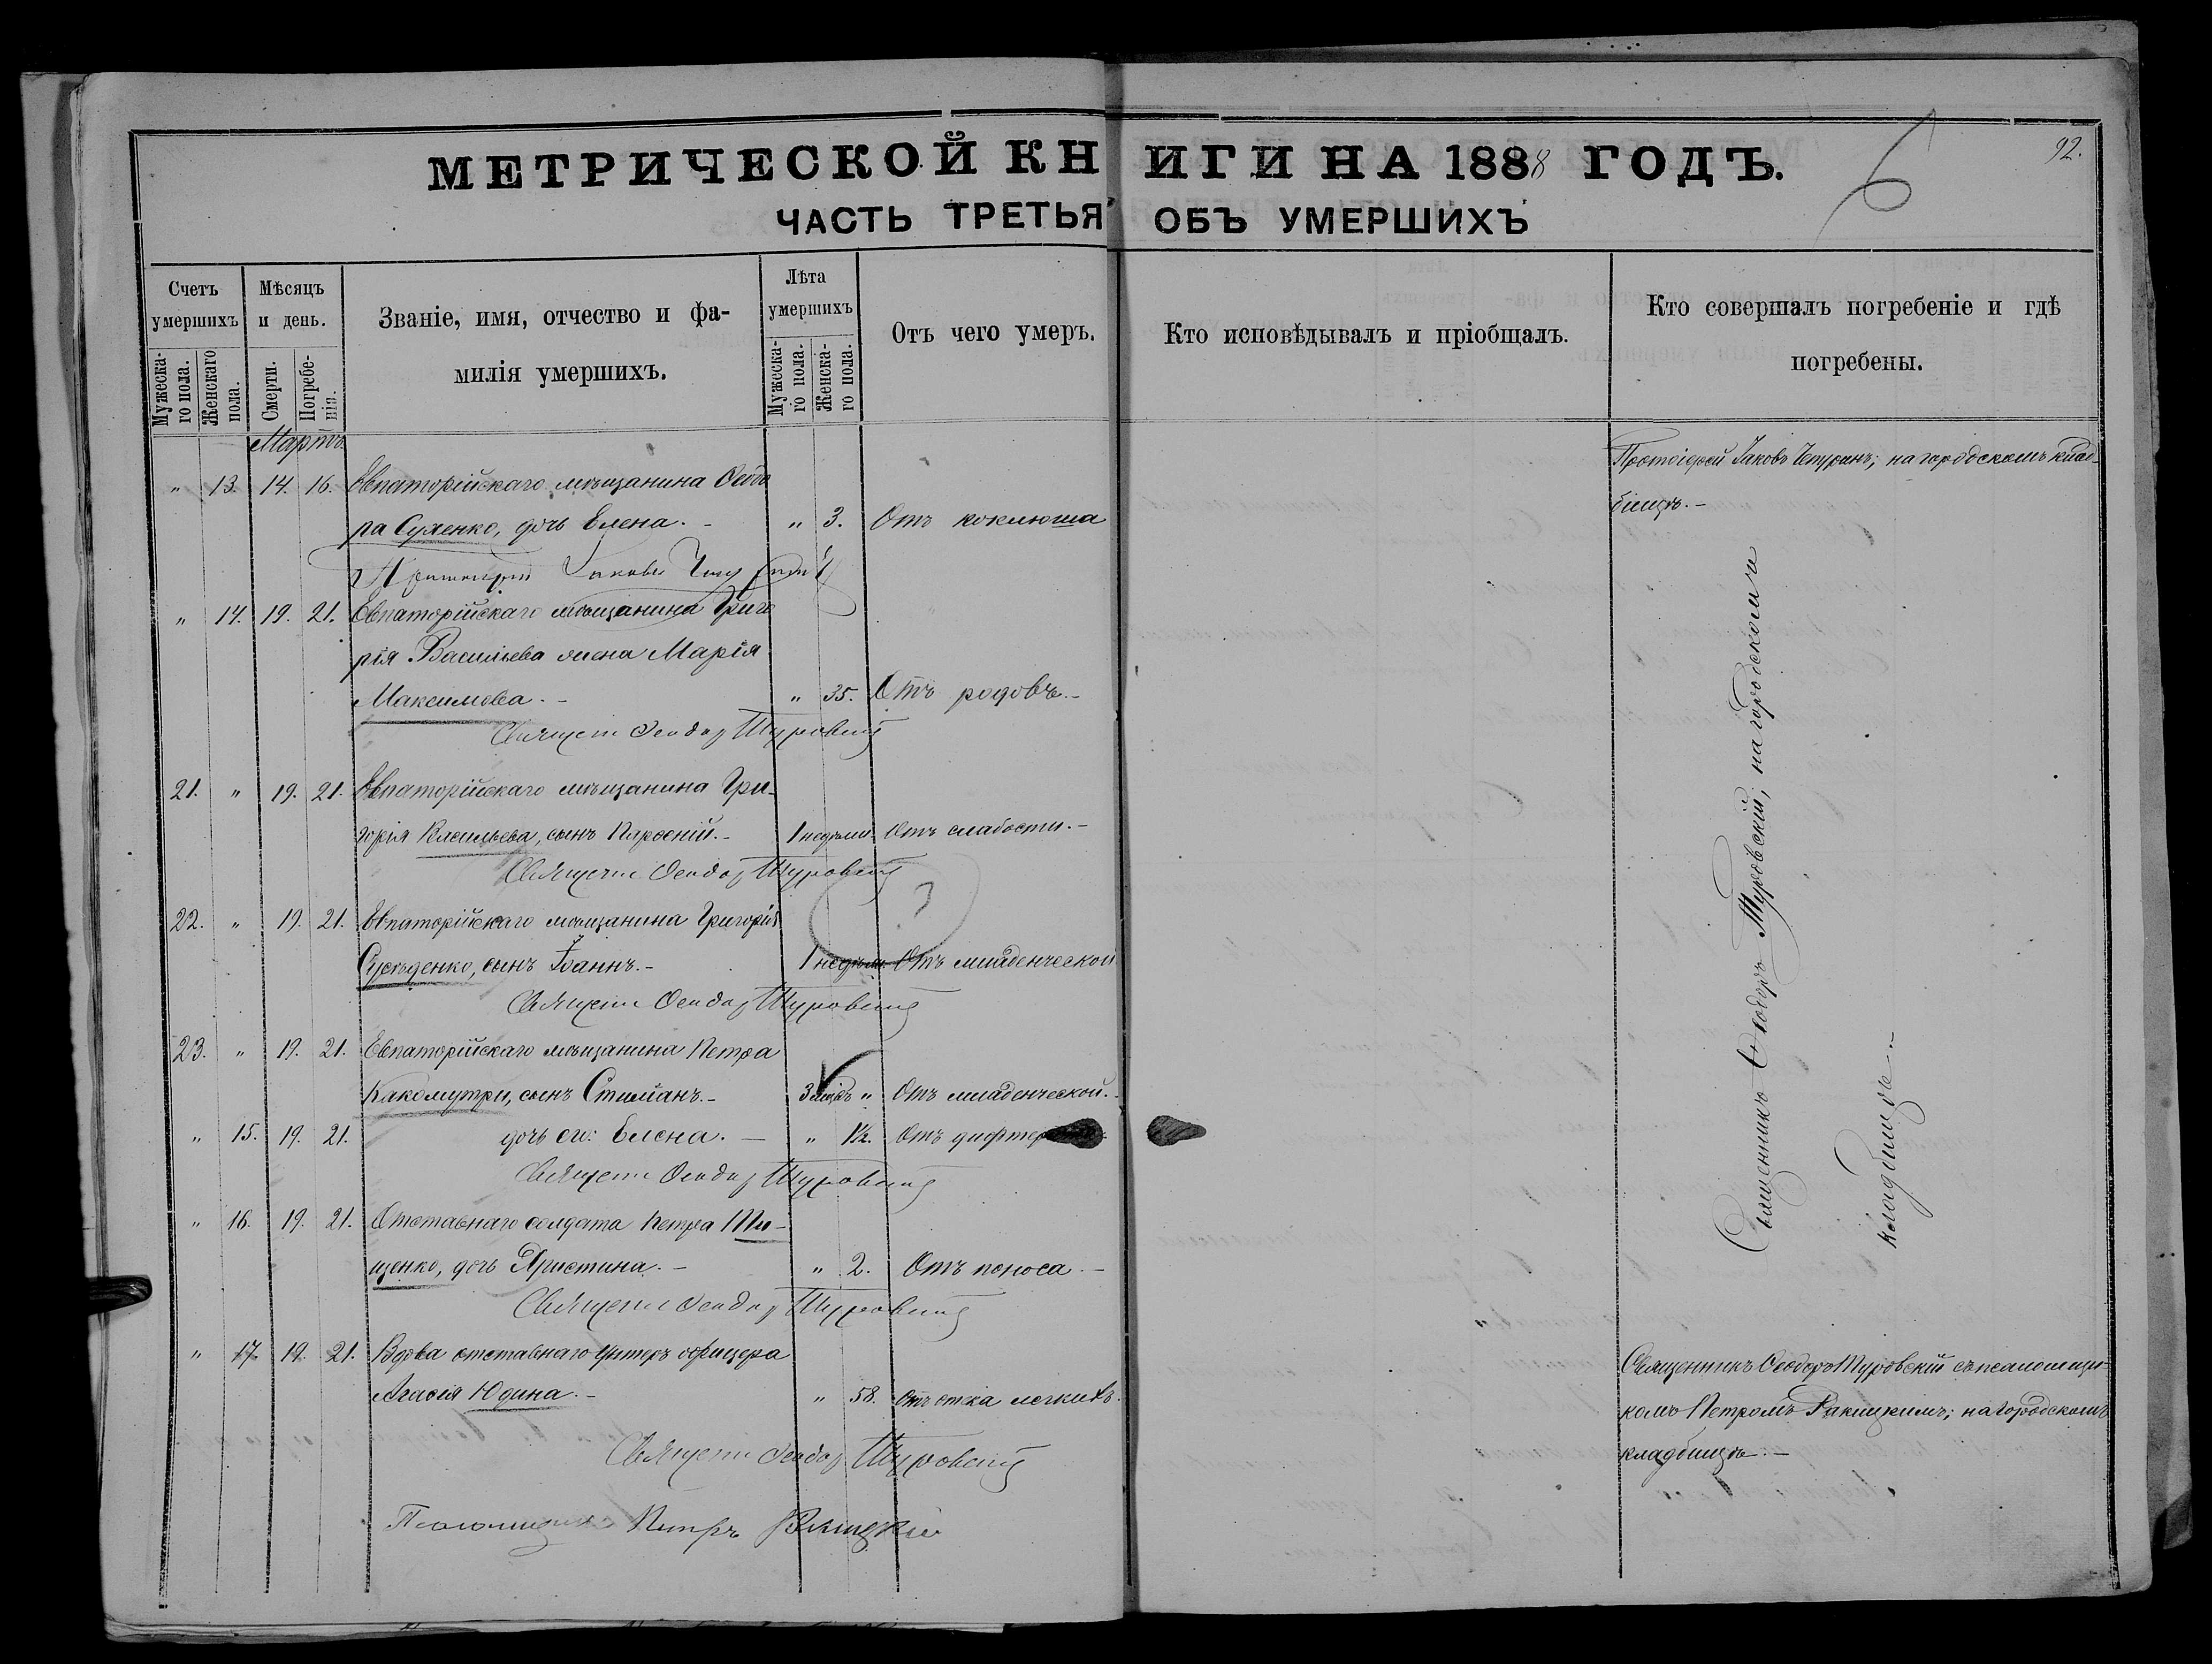 МЕТРИЧЕСКОЙ КНИГИ НА 1888 ГОДЪ.
92.
6
ЧАСТЬ ТРЕТЬЯ ОБЪ УМЕРШИХЪ
Счетъ умершихъ
Мужескаго пола.
Женскаго пола.
Мѣсяцъ и день.
Смерти.
Погребенія.
Званіе, имя, отчество и фамилія умершихъ.
Лѣта умершихъ
Мужескаго пола.
Женскаго пола.
Отъ чего умеръ.
Кто исповѣдывалъ и пріобщалъ.
Кто совершалъ погребеніе и гдѣ погребены.
Мартъ
" 13. 14. 16. Евпаторійскаго мѣщанина Ѳеодо
ра Сухенко, дочь Елена. - " 3. Отъ коклюша
Протоіерей Іаковъ Чепуринъ; на городскомъ клад-
бищѣ. -
Протоіерей Іаковъ
" 14. 19. 21. Евпаторійскаго мѣщанина Григо
рія Васильева жена Марія
Максимова. - " 35. Отъ родовъ. -
Священ Ѳеодор Туровскій
21. " 19. 21. Евпаторійскаго мѣщанина Гри-
горія Васильева, сынъ Парѳеній. - 1 недѣли. Отъ слабости. -
Священ Ѳеодор Туровскій
22. " 19. 21. Евпаторійскаго мѣщанина Григорія
сынъ Іоаннъ. - 1 недѣли. Отъ младенческой
?
Священ Ѳеодор Туровскій
23. " 19. 21. Евпаторійскаго мѣщанина Петра
Какомутри, сынъ Стиліанъ. - 3 " Отъ младенческой. -
" 15. 19. 21. дочь его: Елена. - " 1½. Отъ дифтер
Священ Ѳеодор Туровскій
" 16. 19. 21. Отставнаго солдата Петра Ти-
щенко, дочь Христина. - " 2. Отъ поноса. -
Священ Ѳеодор Туровскій
Священникъ Ѳеодоръ Туровскій; на городскомъ
кладбищѣ. -
" 17. 19. 21. Вдова отставнаго унтеръ офицера
Агафія Юдина. - " 58. Отъ отека легкихъ.
Священникъ Ѳеодоръ Туровскій съ псаломщи-
комъ Петромъ Ракицкимъ; на городскомъ
кладбищѣ. -
Священ Ѳеодор Туровскій
Псаломщикъ Петръ Ракицкій